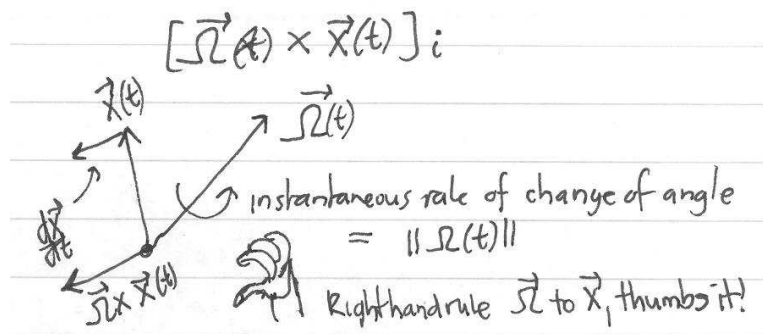 [Ω⃗(t) × X⃗(t)]i
X⃗(t)
Ω⃗(t)
instantaneous rate of change of angle
dX⃗/dt
= ||Ω(t)||
Ω⃗ × X⃗(t)
Right hand rule Ω⃗ to X⃗, thumbs it!